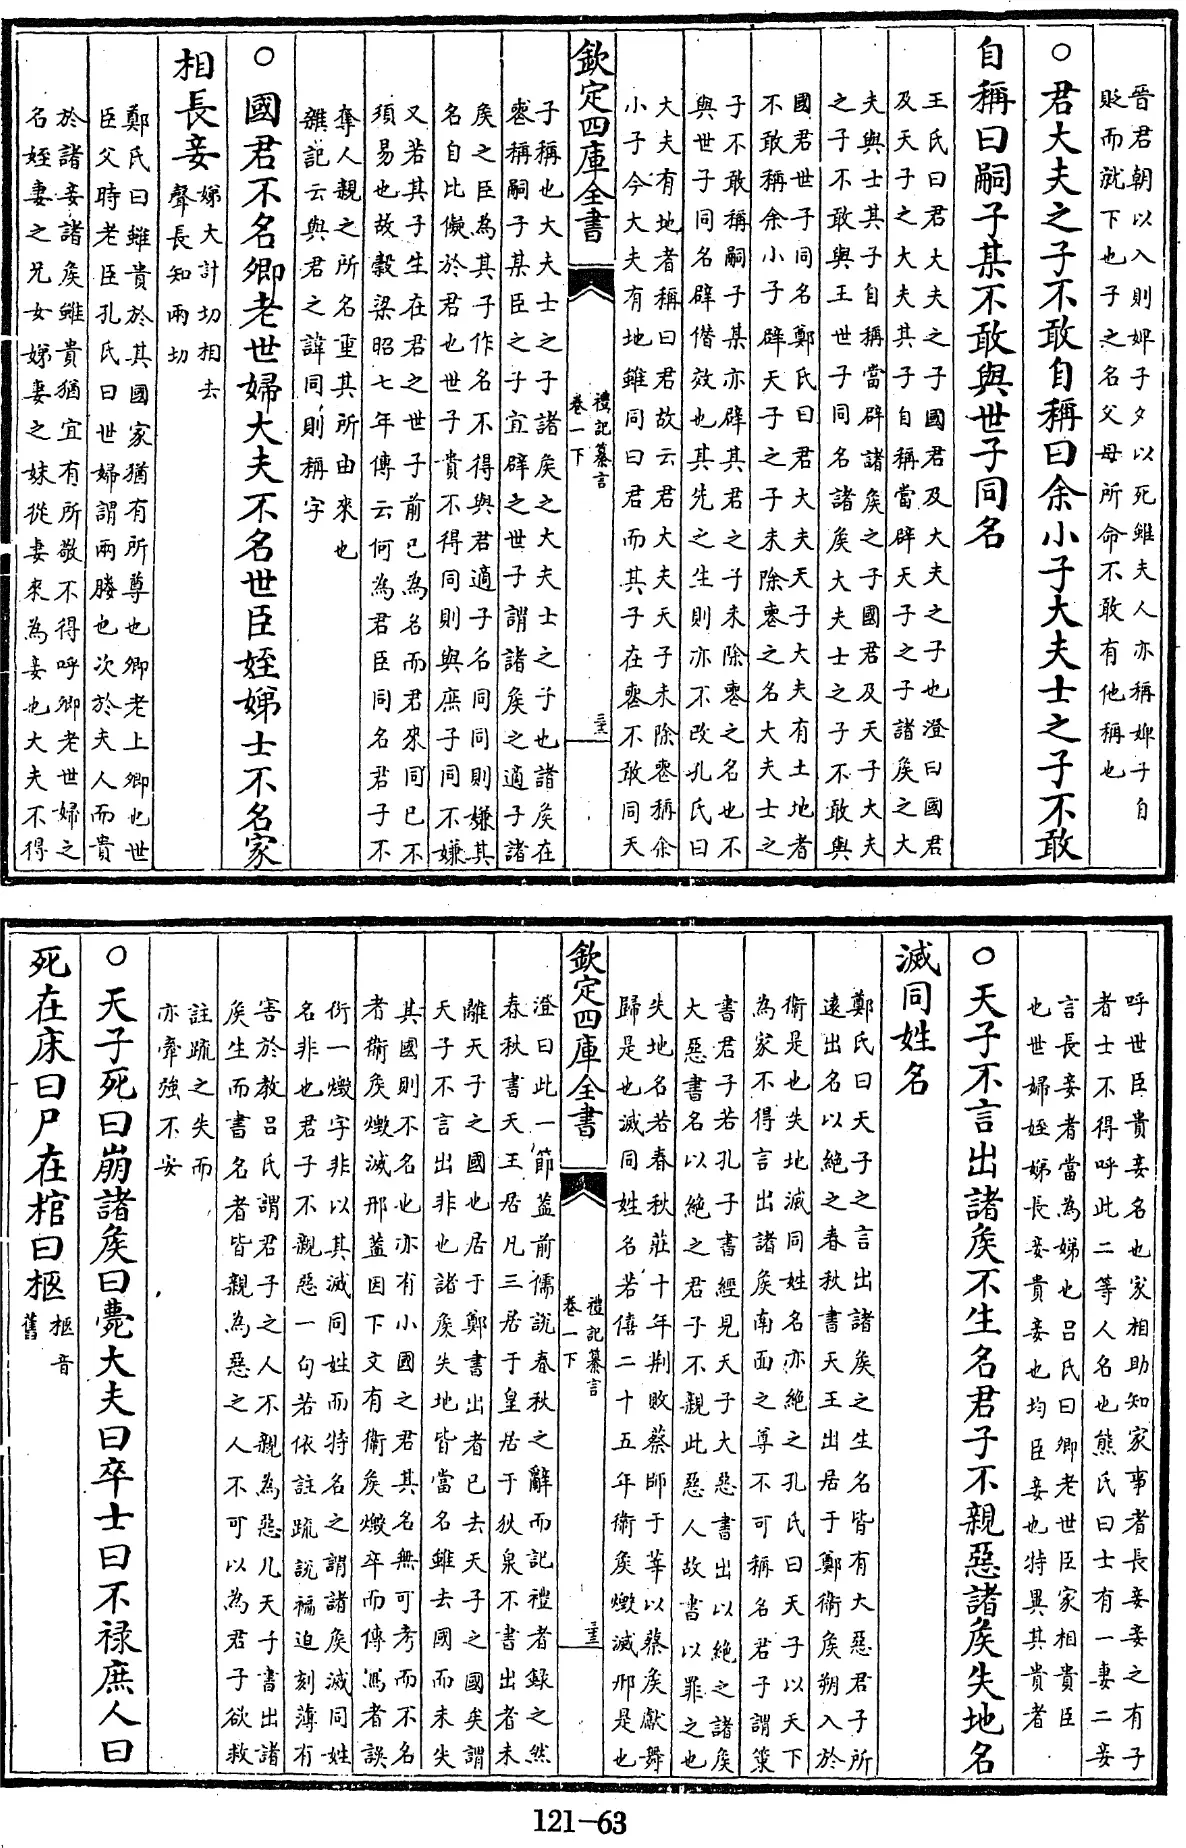 晉君朝以入則婢子夕以死雖夫人亦稱婢子自
貶而就下也子之名父母所命不敢有他稱也
○君大夫之子不敢自稱曰余小子大夫士之子不敢
自稱曰嗣子某不敢與世子同名
王氏曰君大夫之子國君及大夫之子也澄曰國君
及天子之大夫其子自稱當辟天子之子諸侯之大
夫與士其子自稱當辟諸侯之子國君及天子大夫
之子不敢與王世子同名諸侯大夫士之子不敢與
國君世子同名鄭氏曰君大夫天子大夫有土地者
不敢稱余小子辟天子之子未除喪之名大夫士之
子不敢稱嗣子某亦辟其君之子未除喪之名也不
與世子同名辟僭效也其先之生則亦不改孔氏曰
大夫有地者稱曰君故云君大夫天子未除喪稱余
小子今大夫有地雖同曰君而其子在喪不敢同天
欽定四庫全書
禮記纂言
卷一下
子稱也大夫士之子諸侯之大夫士之子也諸侯在
喪稱嗣子某臣之子宜辟之世子謂諸侯之適子諸
侯之臣為其子作名不得與君適子名同同則嫌其
名自比儗於君也世子貴不得同則與庶子同不嫌
又若其子生在君之世子前已為名而君來同已不
須易也故穀梁昭七年傳云何為君臣同名君子不
奪人親之所名重其所由來也
雜記云與君之諱同則稱字
○國君不名卿老世婦大夫不名世臣姪娣士不名家
相長妾
娣大計切相去
聲長知兩切
鄭氏曰雖貴於其國家猶有所尊也卿老上卿也世
臣父時老臣孔氏曰世婦謂兩媵也次於夫人而貴
於諸妾諸侯雖貴猶宜有所敬不得呼卿老世婦之
名姪妻之兄女娣妻之妹從妻來為妾也大夫不得
呼世臣貴妾名也家相助知家事者長妾妾之有子
者士不得呼此二等人名也熊氏曰士有一妻二妾
言長妾者當為娣也呂氏曰卿老世臣家相貴臣
也世婦姪娣長妾貴妾也均臣妾也特異其貴者
○天子不言出諸侯不生名君子不親惡諸侯失地名
滅同姓名
鄭氏曰天子之言出諸侯之生名皆有大惡君子所
遠出名以絶之春秋書天王出居于鄭衛侯朔入於
衛是也失地滅同姓名亦絶之孔氏曰天子以天下
為家不得言出諸侯南面之尊不可稱名君子謂策
書君子若孔子書經見天子大惡書出以絶之諸侯
大惡書名以絶之君子不親此惡人故書以罪之也
失地名若春秋莊十年荆敗蔡師于莘以蔡侯獻舞
歸是也滅同姓名若僖二十五年衛侯燬滅邢是也
欽定四庫全書
禮記纂言
卷一下
澄曰此一節蓋前儒說春秋之辭而記禮者録之然
春秋書天王居凡三居于皇居于狄泉不書出者未
離天子之國也居于鄭書出者已去天子之國矣謂
天子不言出非也諸侯失地皆當名雖去國而未失
其國則不名也亦有小國之君其名無可考而不名
者衛侯燬滅邢蓋因下文有衛侯燬卒而傳寫者誤
衍一燬字非以其滅同姓而特名之謂諸侯滅同姓
名非也君子不親惡一句若依註疏說褊迫刻薄有
害於教呂氏謂君子之人不親為惡凡天子書出諸
侯生而書名者皆親為惡之人不可以為君子欲救
註疏之失而
亦牽強不安
○天子死曰崩諸侯曰薨大夫曰卒士曰不祿庶人曰
死在床曰尸在棺曰柩
柩音
舊
121-63